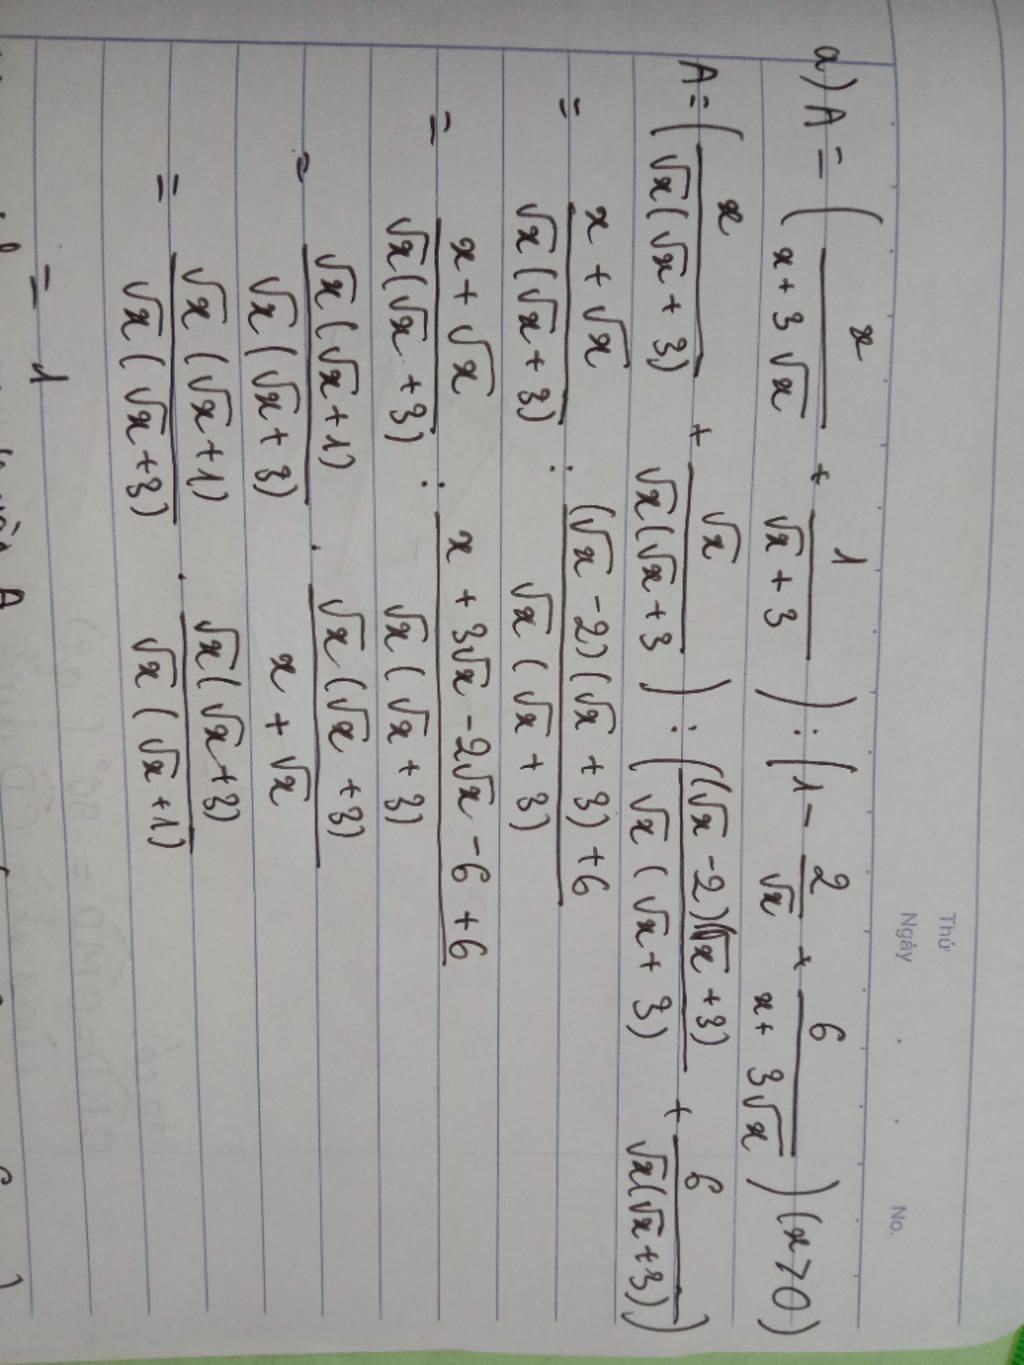 Thứ
Ngày . . No.
a) A = ( x/(x + 3√x) + 1/(√x + 3) ) : ( 1 - 2/√x + 6/(x + 3√x) ) (x > 0)
A = ( x/(√x(√x + 3)) + √x/(√x(√x + 3) ) : ( ((√x - 2)(√x + 3))/(√x(√x + 3)) + 6/(√x(√x + 3)) )
= (x + √x)/(√x(√x + 3)) : ((√x - 2)(√x + 3) + 6)/(√x(√x + 3))
= (x + √x)/(√x(√x + 3)) : (x + 3√x - 2√x - 6 + 6)/(√x(√x + 3))
= (√x(√x + 1))/(√x(√x + 3)) . (√x(√x + 3))/(x + √x)
= (√x(√x + 1))/(√x(√x + 3)) . (√x(√x + 3))/(√x(√x + 1))
= 1